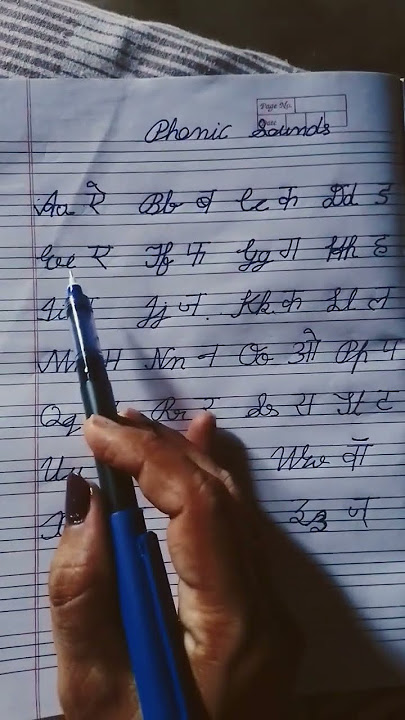 Page No.
Date
Phonic Sounds
Aa ऐ Bb ब Cc क Dd ड
Ee ए Ff फ Gg ग Hh ह
Jj ज. Kk क Ll ल
Mm म Nn न Oo ओ Pp प
Qq Rr र Ss स Tt ट
Ww वॉ
Zz ज